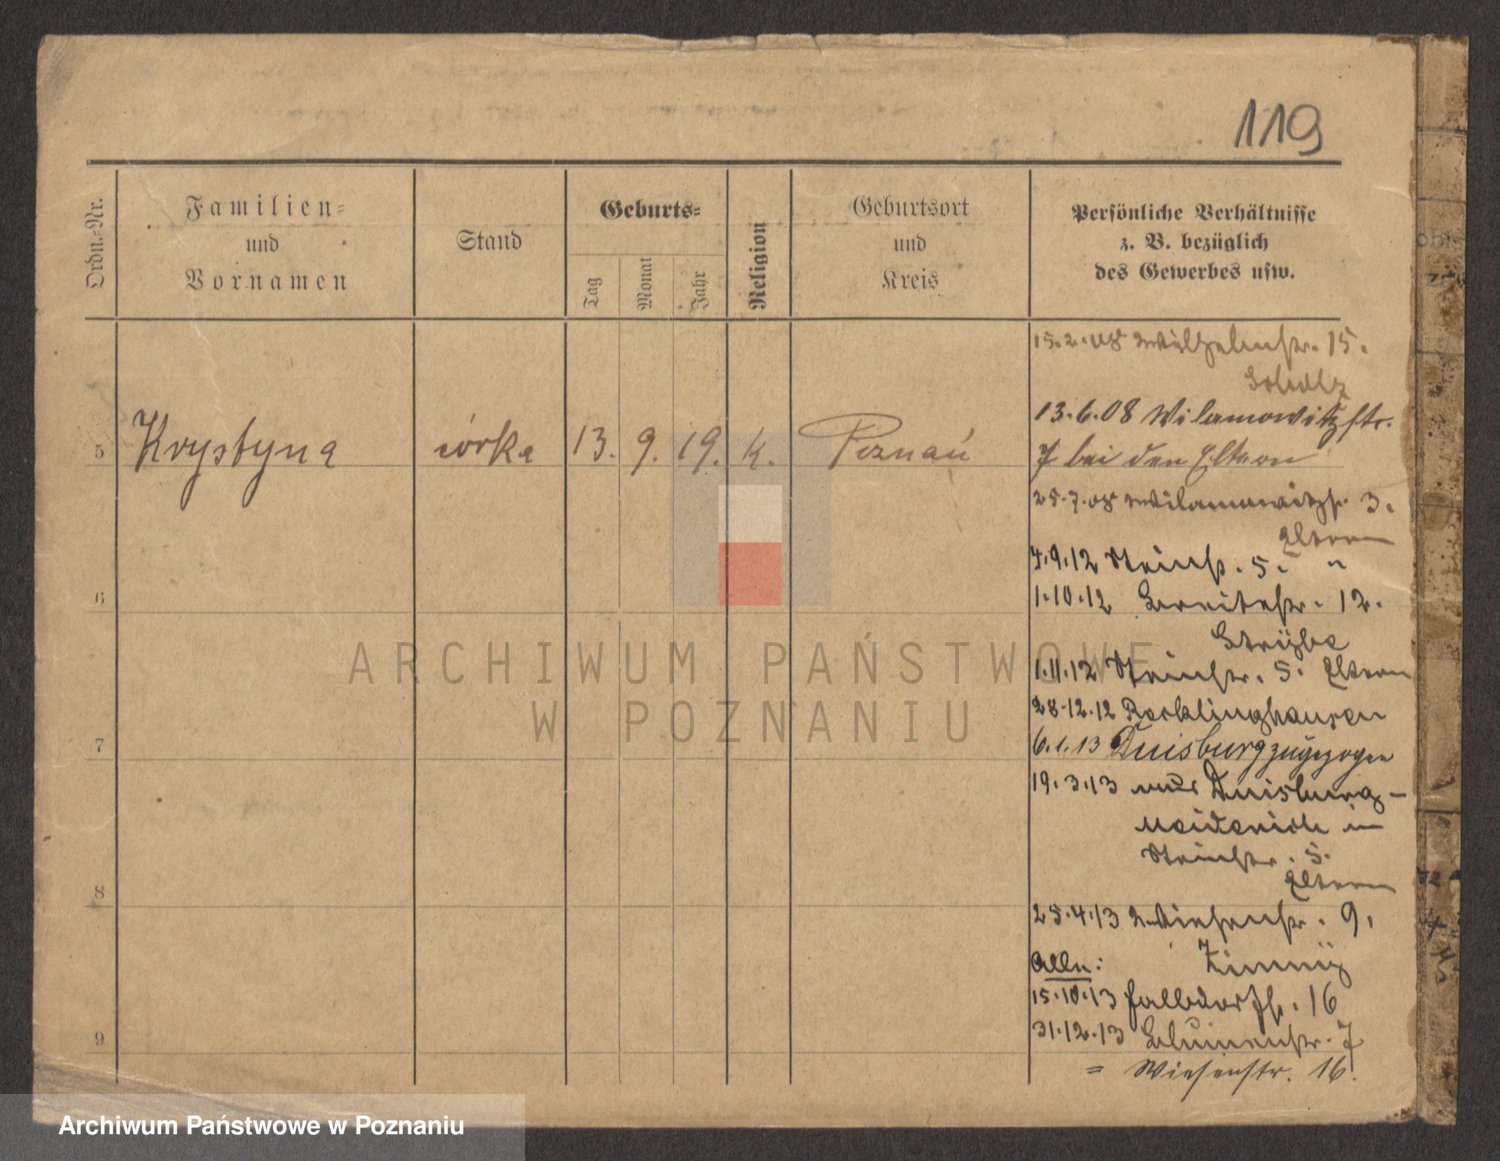 119
Ordn.-Nr.
Familien-
und
Vornamen
Stand
Geburts-
Tag
Monat
Jahr
Religion
Geburtsort
und
Kreis
Persönliche Verhältnisse
z. B. bezüglich
des Gewerbes usw.
5 Krystyna córka 13. 9. 19. k. Poznań
6
7
8
9
15.2.08 Wilhelmstr. 15.
Scholz
13.6.08 Wilamowitzstr.
7 bei den Eltern
25.7.08 Wilamowitzstr. 3.
Eltern
4.9.12 Steinstr. 5. "
1.10.12 Breitestr. 12.
1.11.12 Steinstr. 5. Eltern
28.12.12 Recklinghausen
6.1.13 Duisburg zugezogen
19.3.13 aus Duisburg-
Meiderich in
Steinstr. 5.
Eltern
25.4.13 Wiesenstr. 9.
Alln: Zimny
15.10.13 Falbdorfstr. 16
31.12.13 Blumenstr. 7
= Wiesenstr. 16.
ARCHIWUM PAŃSTWOWE
W POZNANIU
Archiwum Państwowe w Poznaniu